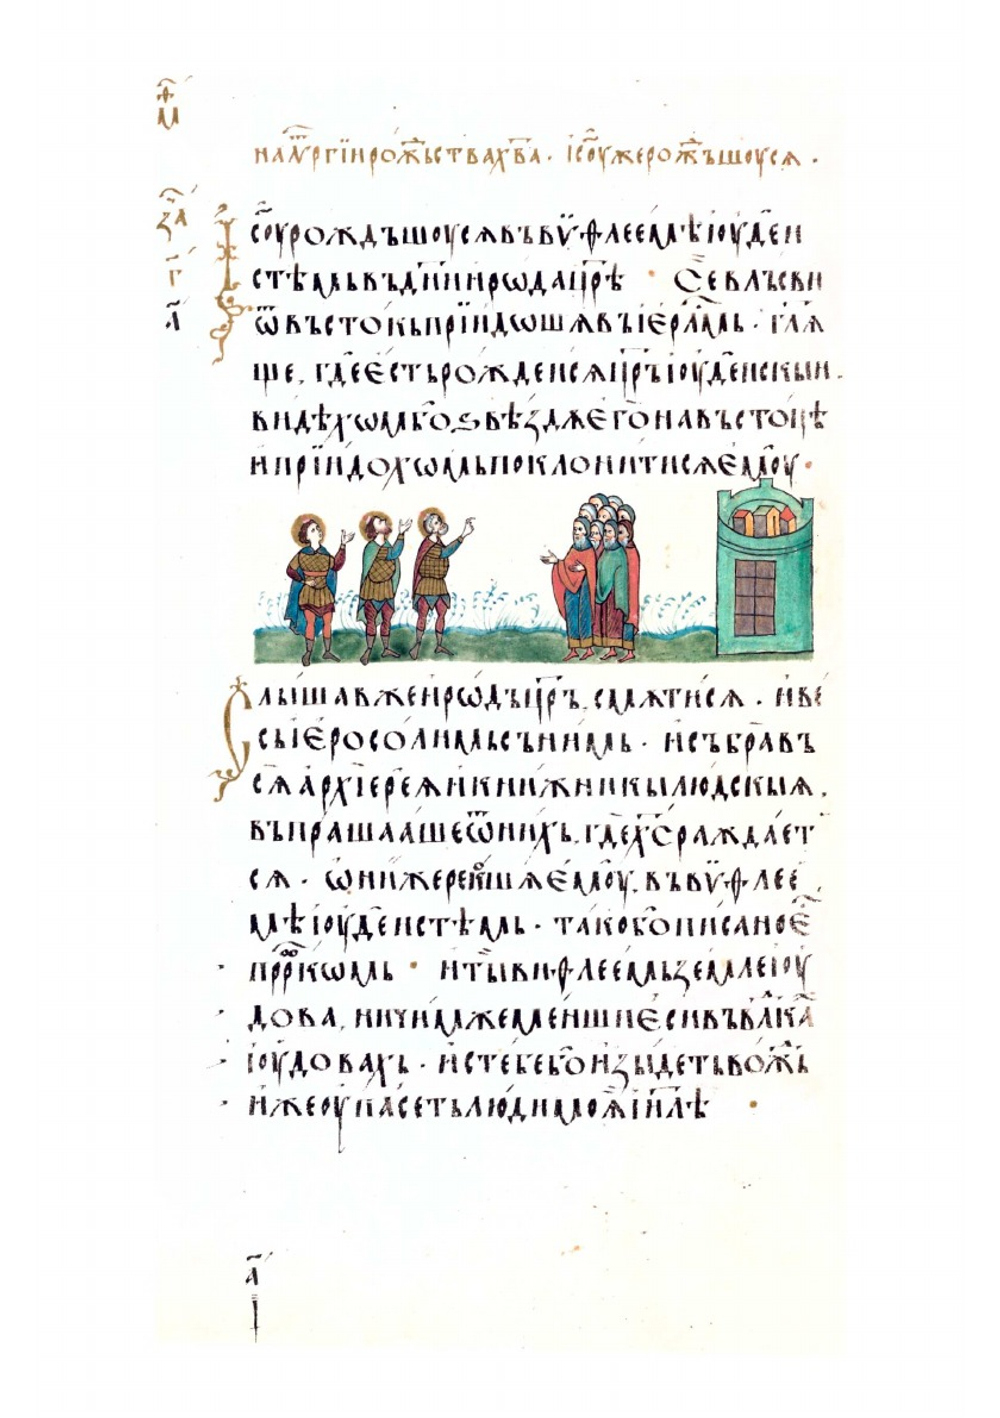 на лⷮургїи рожⷭ҇ства хв҃а · іс҃оу же рожⷣьшоусѧ ·
за҃
г҃
а҃
Іс҃оу рождъшоусѧ въ вѵ҆ѳлеемѣ і҆оуде́и
стѣмь въ дн҃и и҆рѡда цр҃ѣ · Се влъсви
ѿ въстокь прїидошѧ въ і҆ерⷭ҇лмь · гл҃ѧ
ще, где е҆сть рождеисѧ цр҃ъ і҆оуде́искыи ·
видѣхѡм бо ѕвѣздѫ е҆го на въстоцѣ
и҆ прїидохѡмь поклонитисѧ е҆моу ·
Слышав же и҆рѡдъ цр҃ъ, смѧтисѧ · и҆ ве
сь і҆еросолимь съ ним · и҆ събрав
сѧ а҆рхїереѧ и҆ книжникы людскыѧ,
въпрашааше ѿ них, где хс҃ раждает
сѧ · ѡ҆ни же рекошѧ е҆моу, въ вѵ҆ѳлее
мѣ і҆оуде́истѣмь · тако бо писано е҆ⷭ҇
прⷪ҇ркѡмь · и҆ ты виѳлеемь земле і҆оу
дова, ничим же менши е҆си въ влⷣкаⷯ
і҆оудовах · и҆с тебе бо и҆зыдеть вожⷣь
и҆же оупасеть люди моѧ і҆и҃лѣ
а҃
і